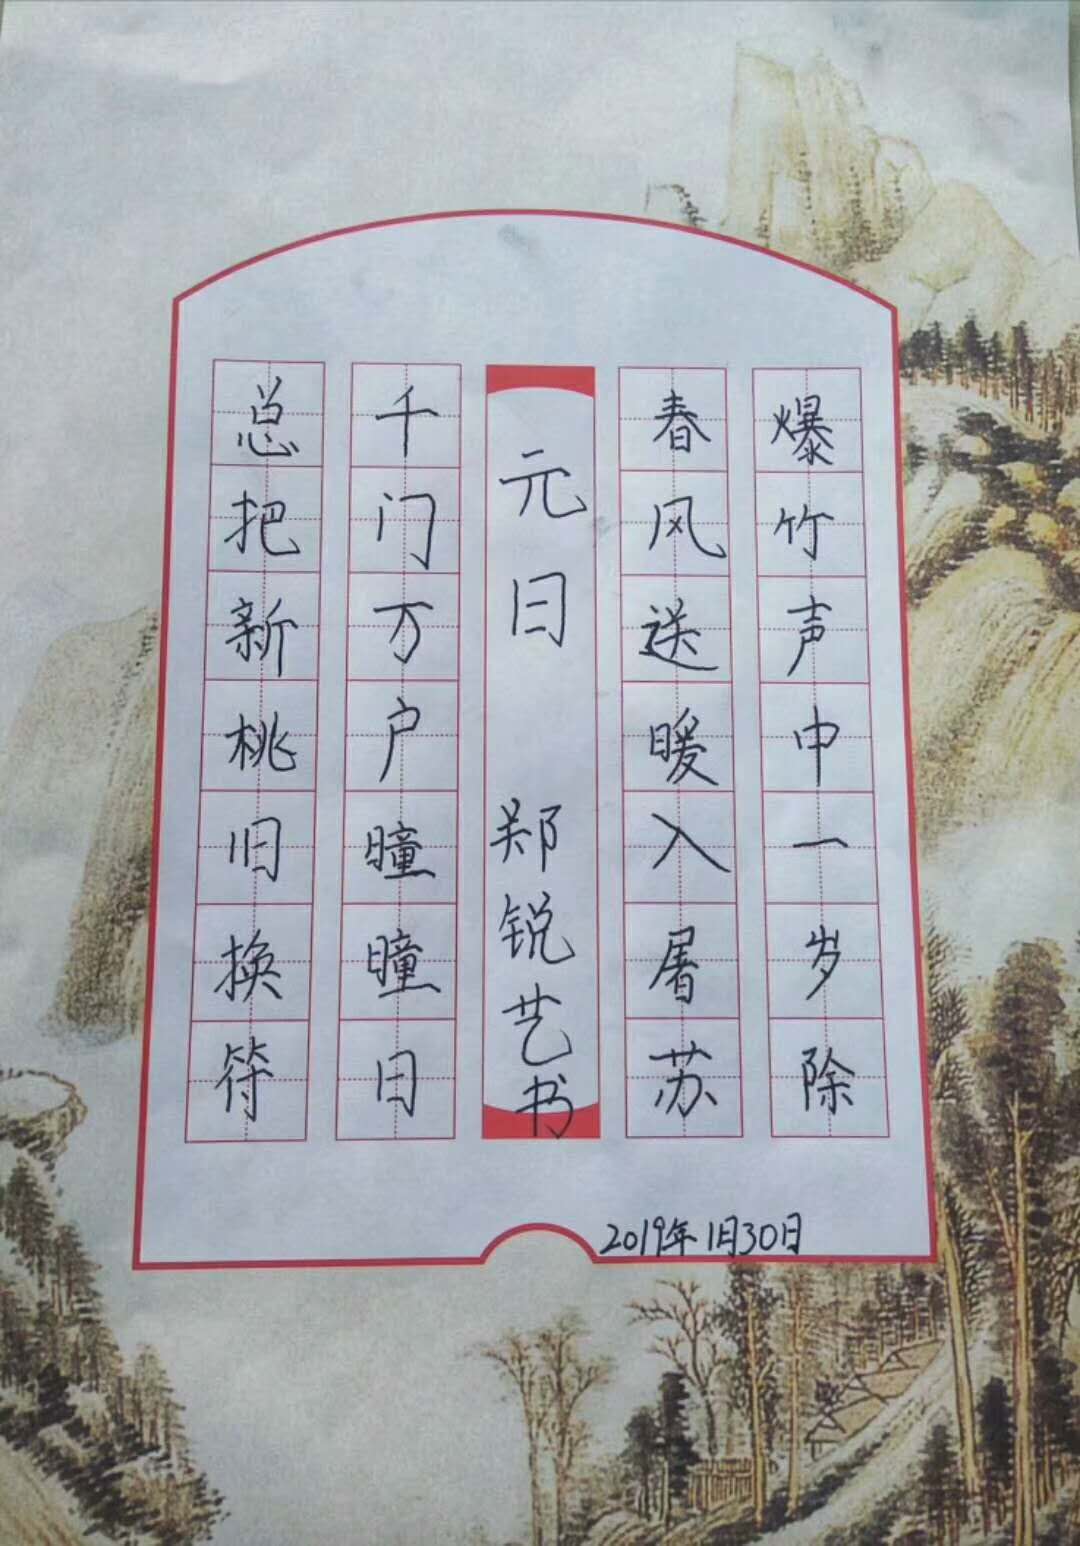 爆竹声中一岁除
春风送暖入屠苏
元日 郑锐艺书
千门万户瞳瞳日
总把新桃旧换符
2019年1月30日